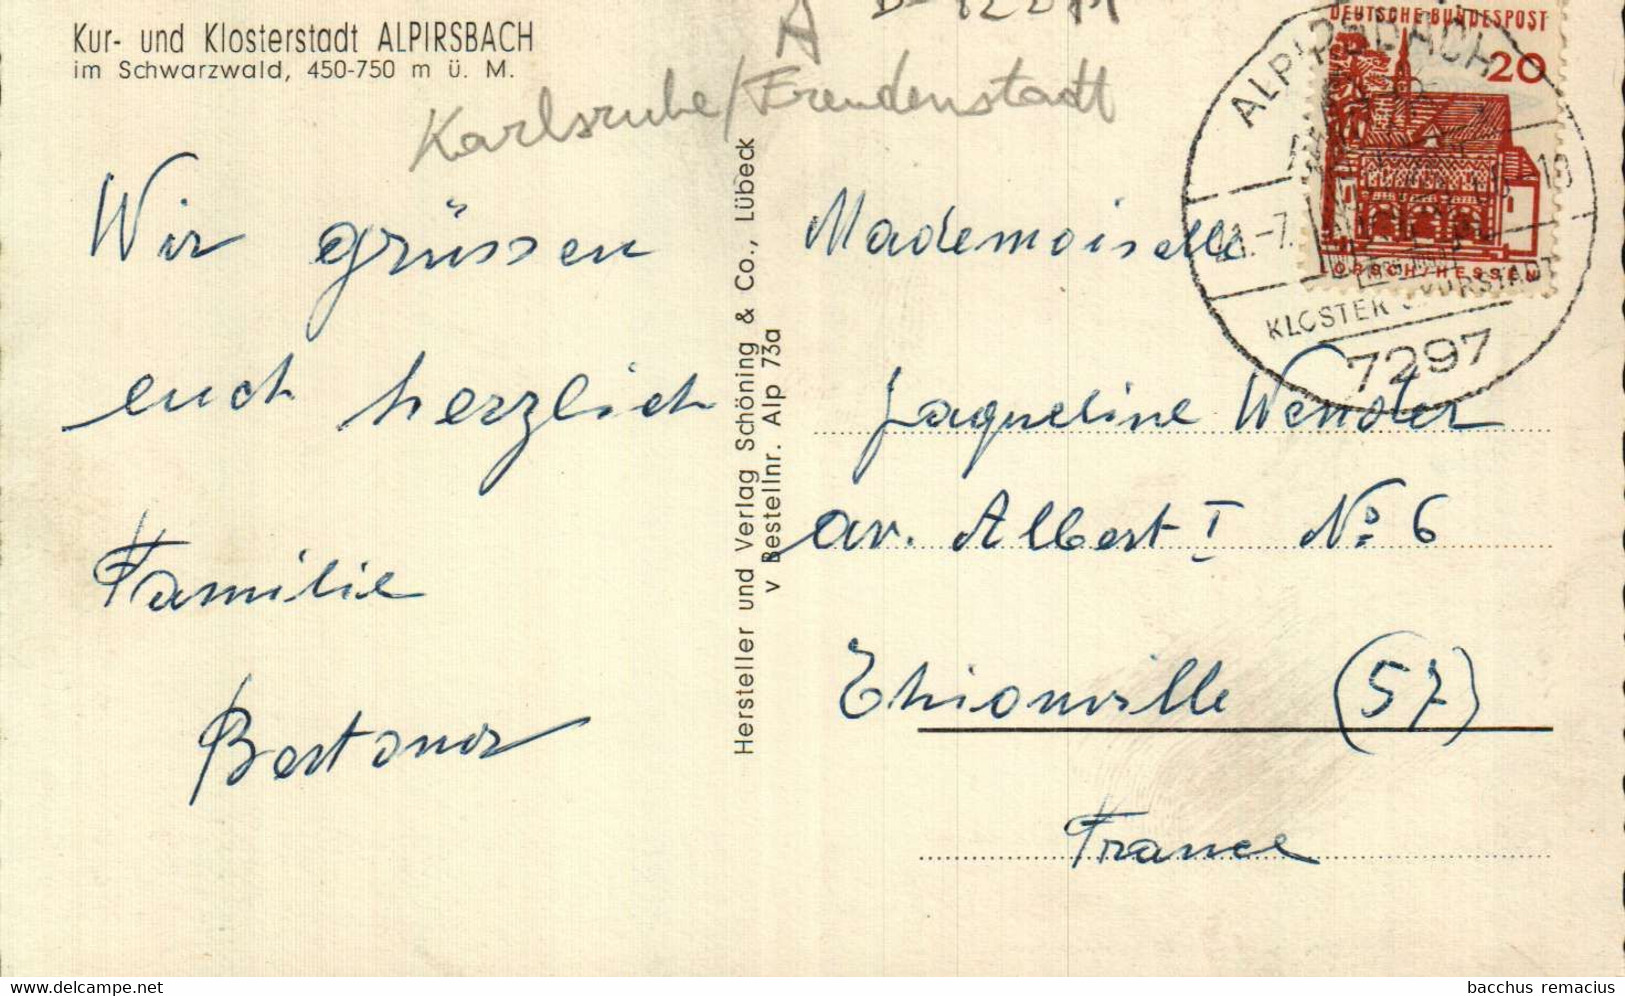 Kur- und Klosterstadt ALPIRSBACH
im Schwarzwald, 450-750 m ü. M.
A
Karlsruhe/Freudenstadt
Wir grüssen
euch herzlich
Familie
Hersteller und Verlag Schöning & Co., Lübeck
v Bestellnr. Alp 73a
DEUTSCHE BUNDESPOST
20
LORSCH/HESSEN
ALPIRSBACH
-7.
KLOSTER
7297
Mademoiselle
Jaqueline Wendler
av. Albert I No 6
Thionville (57)
France
www.delcampe.net
bacchus remacius